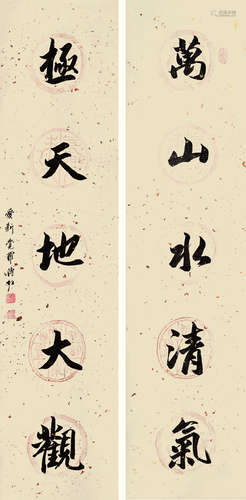 萬山水清氣
極天地大觀
愛新覺羅溥